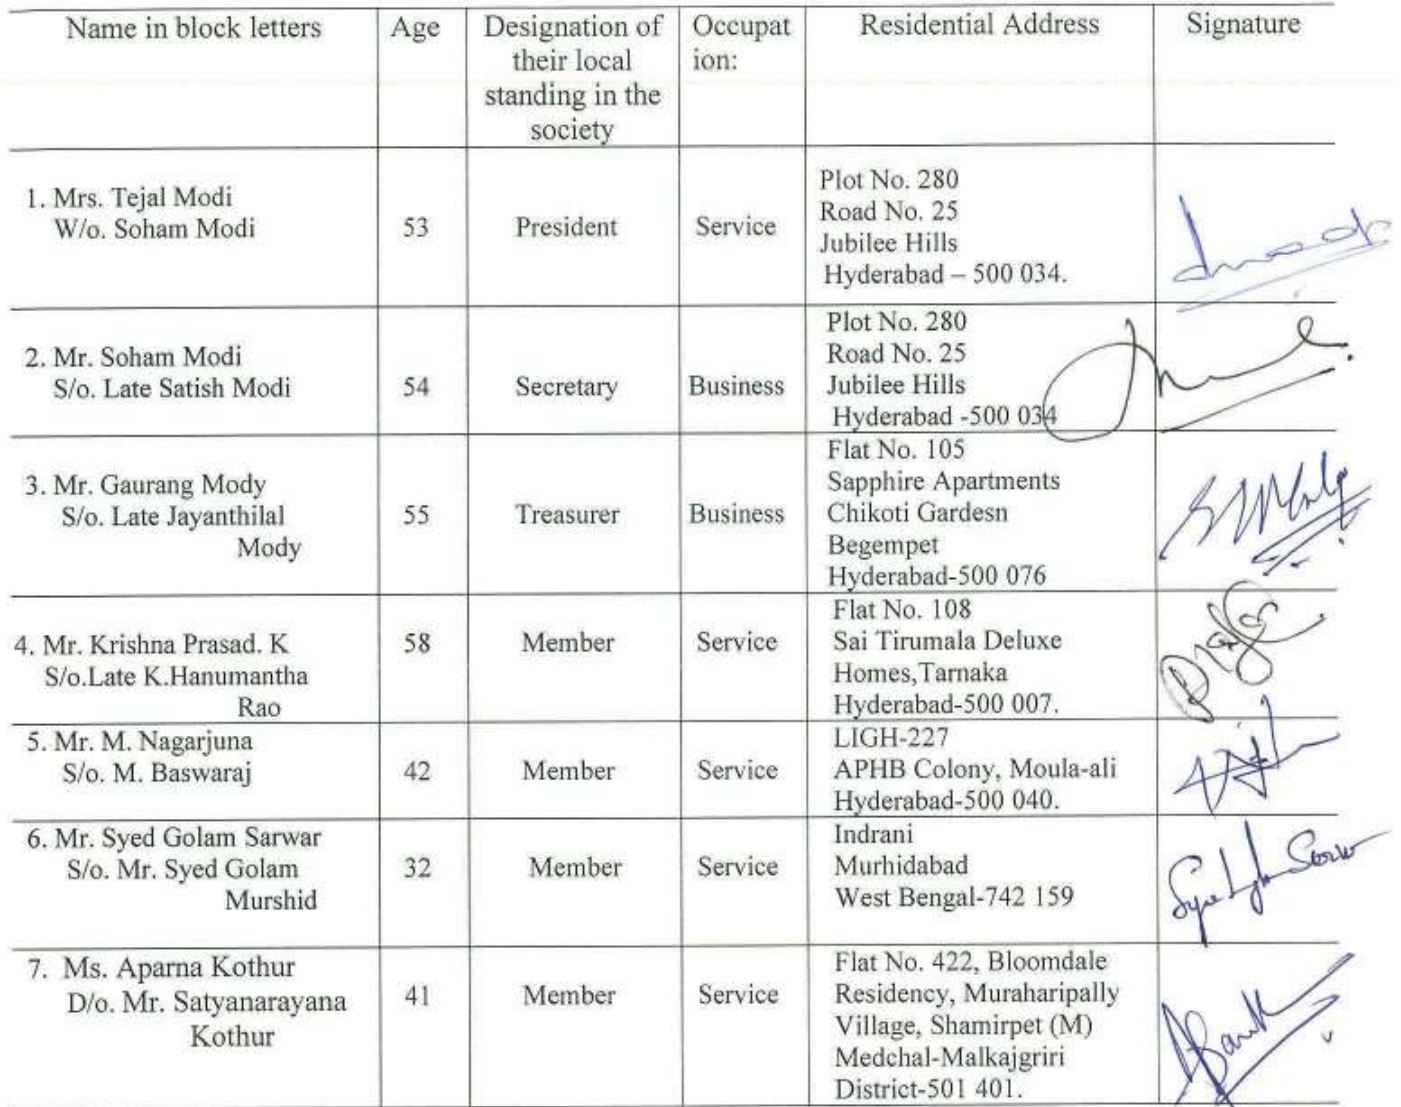 Name in block letters Age Designation of their local standing in the society Occupat ion: Residential Address Signature
1. Mrs. Tejal Modi
W/o. Soham Modi
53
President
Service
Plot No. 280
Road No. 25
Jubilee Hills
Hyderabad – 500 034.
2. Mr. Soham Modi
S/o. Late Satish Modi
54
Secretary
Business
Plot No. 280
Road No. 25
Jubilee Hills
Hyderabad -500 034
3. Mr. Gaurang Mody
S/o. Late Jayanthilal
Mody
55
Treasurer
Business
Flat No. 105
Sapphire Apartments
Chikoti Gardesn
Begempet
Hyderabad-500 076
4. Mr. Krishna Prasad. K
S/o.Late K.Hanumantha
Rao
58
Member
Service
Flat No. 108
Sai Tirumala Deluxe
Homes,Tarnaka
Hyderabad-500 007.
5. Mr. M. Nagarjuna
S/o. M. Baswaraj
42
Member
Service
LIGH-227
APHB Colony, Moula-ali
Hyderabad-500 040.
6. Mr. Syed Golam Sarwar
S/o. Mr. Syed Golam
Murshid
32
Member
Service
Indrani
Murhidabad
West Bengal-742 159
7. Ms. Aparna Kothur
D/o. Mr. Satyanarayana
Kothur
41
Member
Service
Flat No. 422, Bloomdale
Residency, Muraharipally
Village, Shamirpet (M)
Medchal-Malkajgriri
District-501 401.